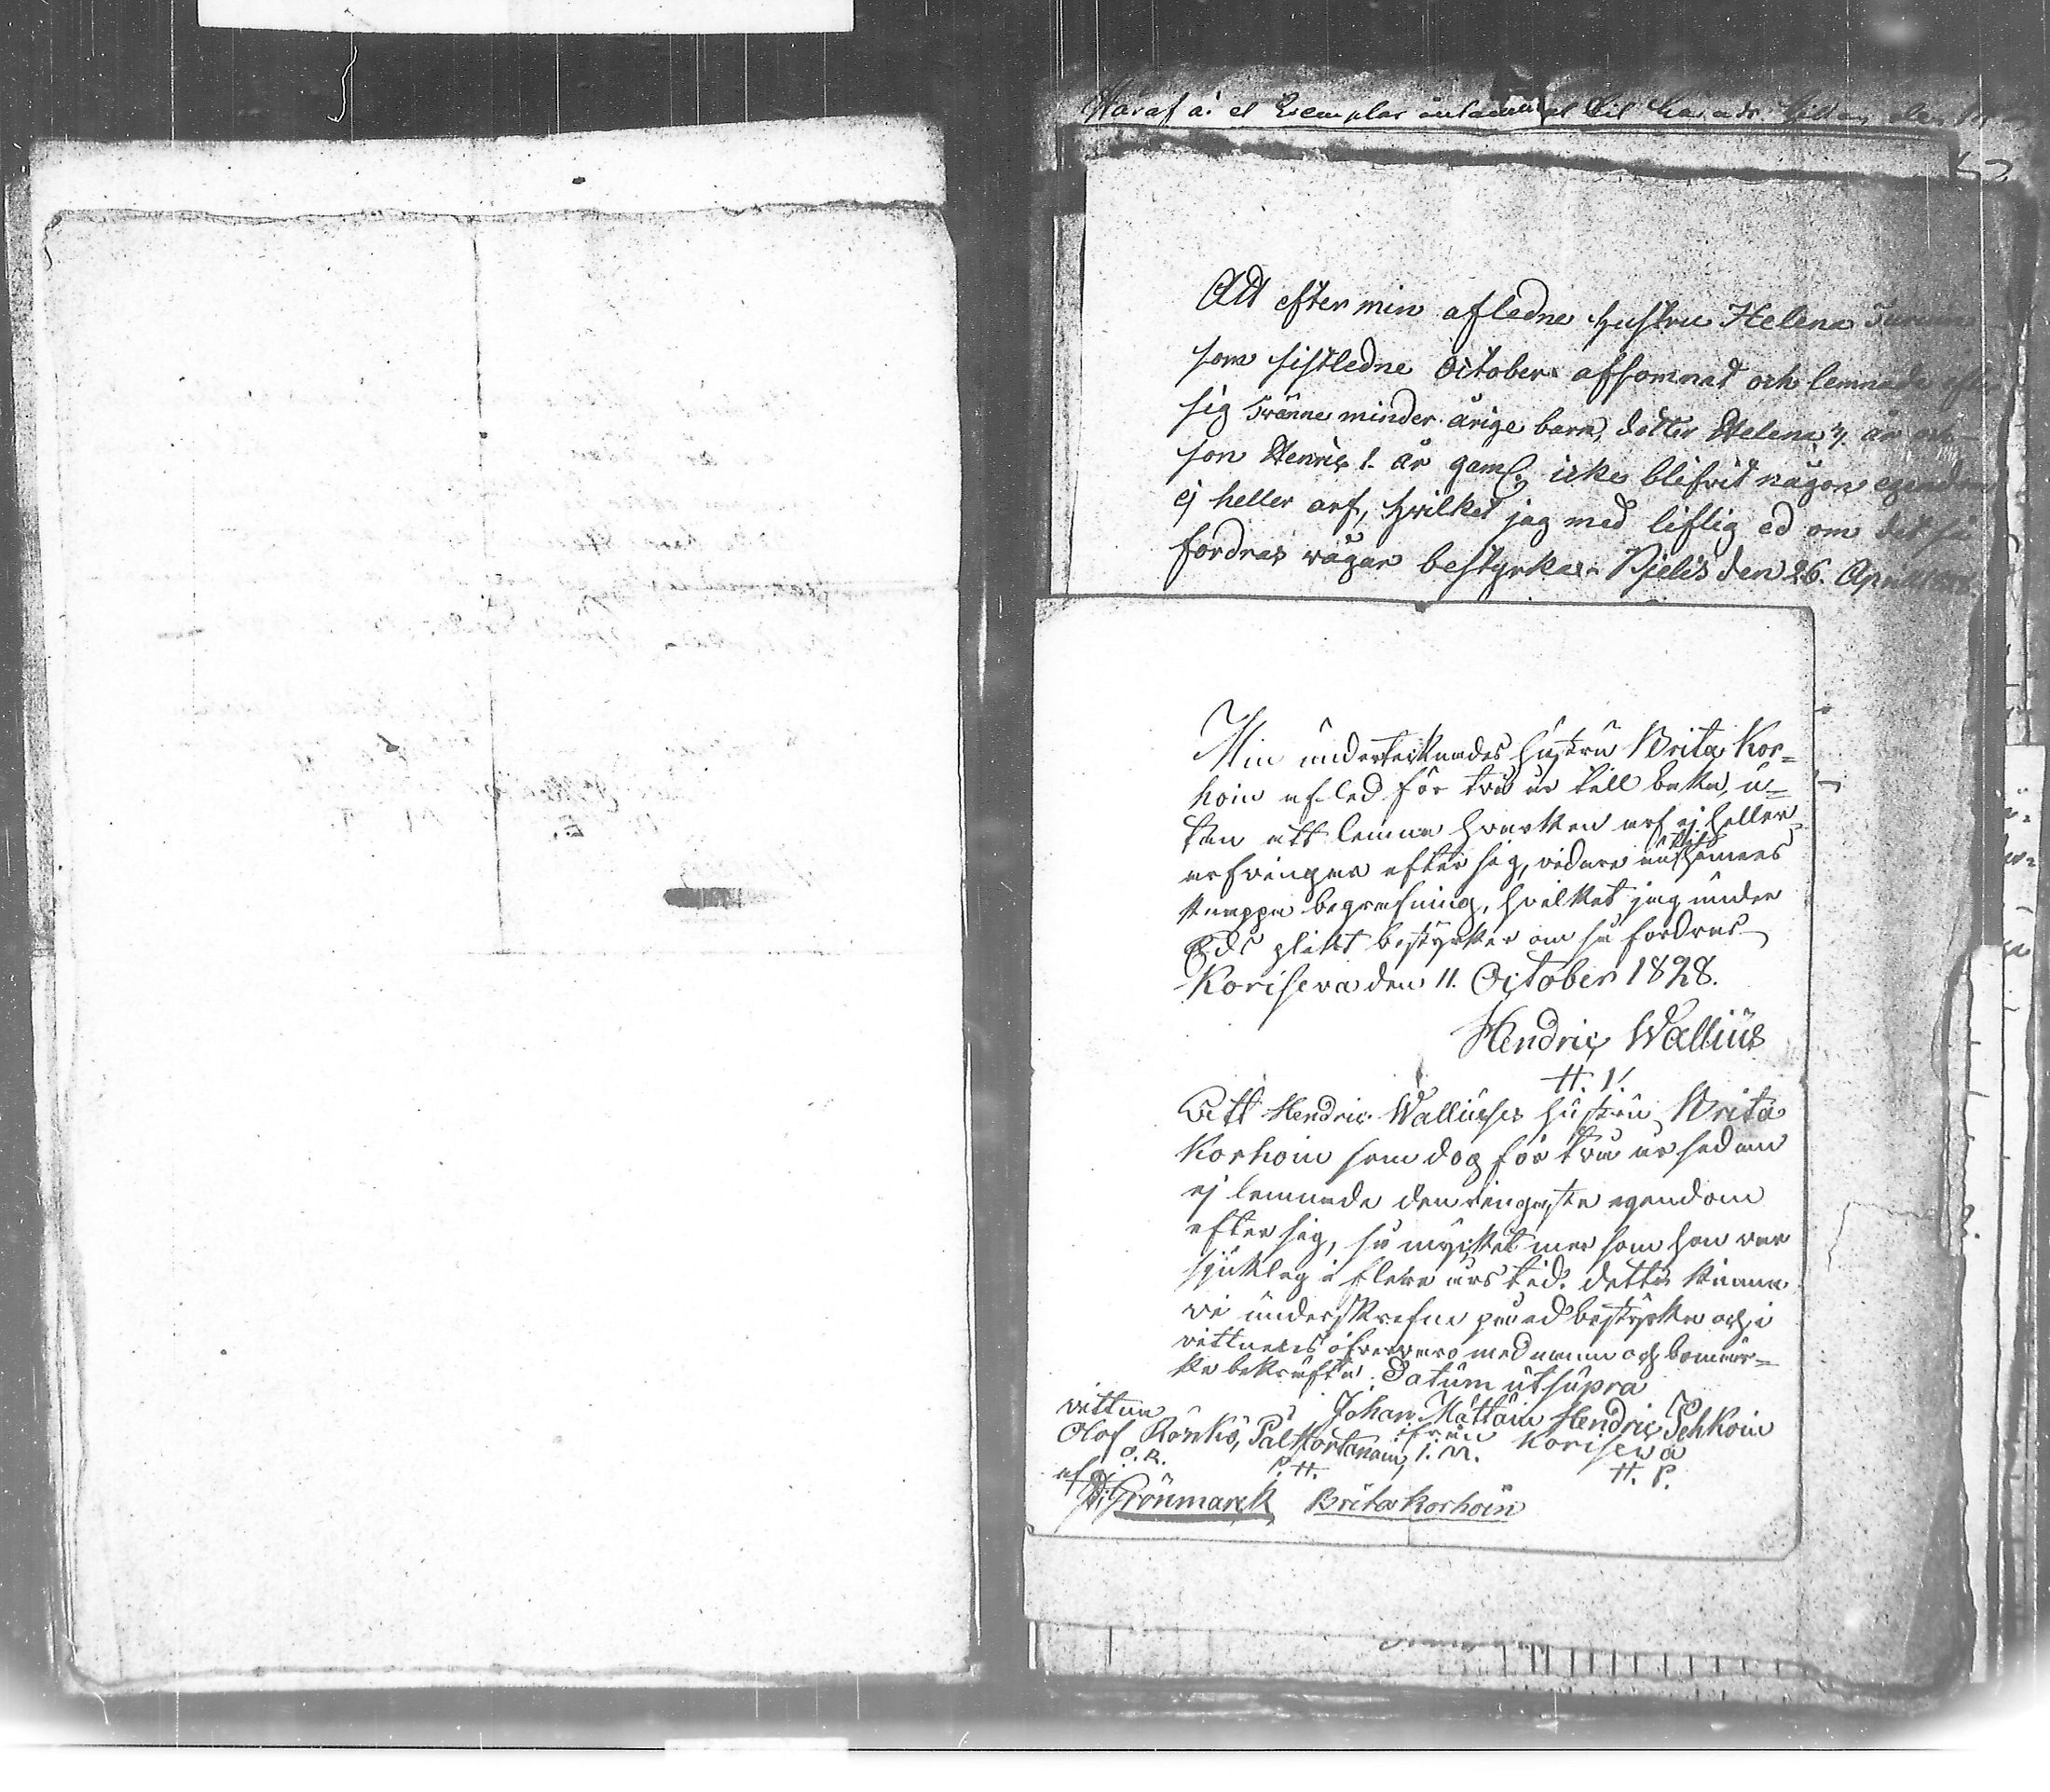 Häraf är et Exemplar inlämnat til
Att efter min afledne hustru Helena
som sistledne October afsomnad och lemnade efter
sig tvänne minder årige barn, dotter Helena 7. år och
son Henric 1. år gaml. icke blifvit någon egendom
ej heller arf, hvilket jag med liflig ed om det så
fordras vågar bestyrka. Pielis den 26. April
Min undertecknades hustru Brita Kor=
hoin afled för två år till baka, u=
tan att lemna hvarken arf ej heller
arfvingar efter sig, vidare än
knappa begrafning, hvilket jag under
Eds plikt bestyrker om så fordras
Koriseva den 11. October 1828.
Hendric Wallius
H. V.
Att Hendric Walliuses hustru Brita
Korhoin som dog för två år sedan
ej lemnade den ringaste egendom
efter sig, så mycket mer som hon var
sjuklag i flera års tid. detta kunna
vi underskrefne på ed bestyrka och i
vittnens öfvervaro med namn och bomär=
ke bekräfta. Datum ut supra
vittna Johan Mattain Hendric Pehkoin
Olof Rönkö, Pål Hortanain, ifrån Koriseva
O. R. P. H. I. M. H. P.
af
Grönmarck Brita Korhoin